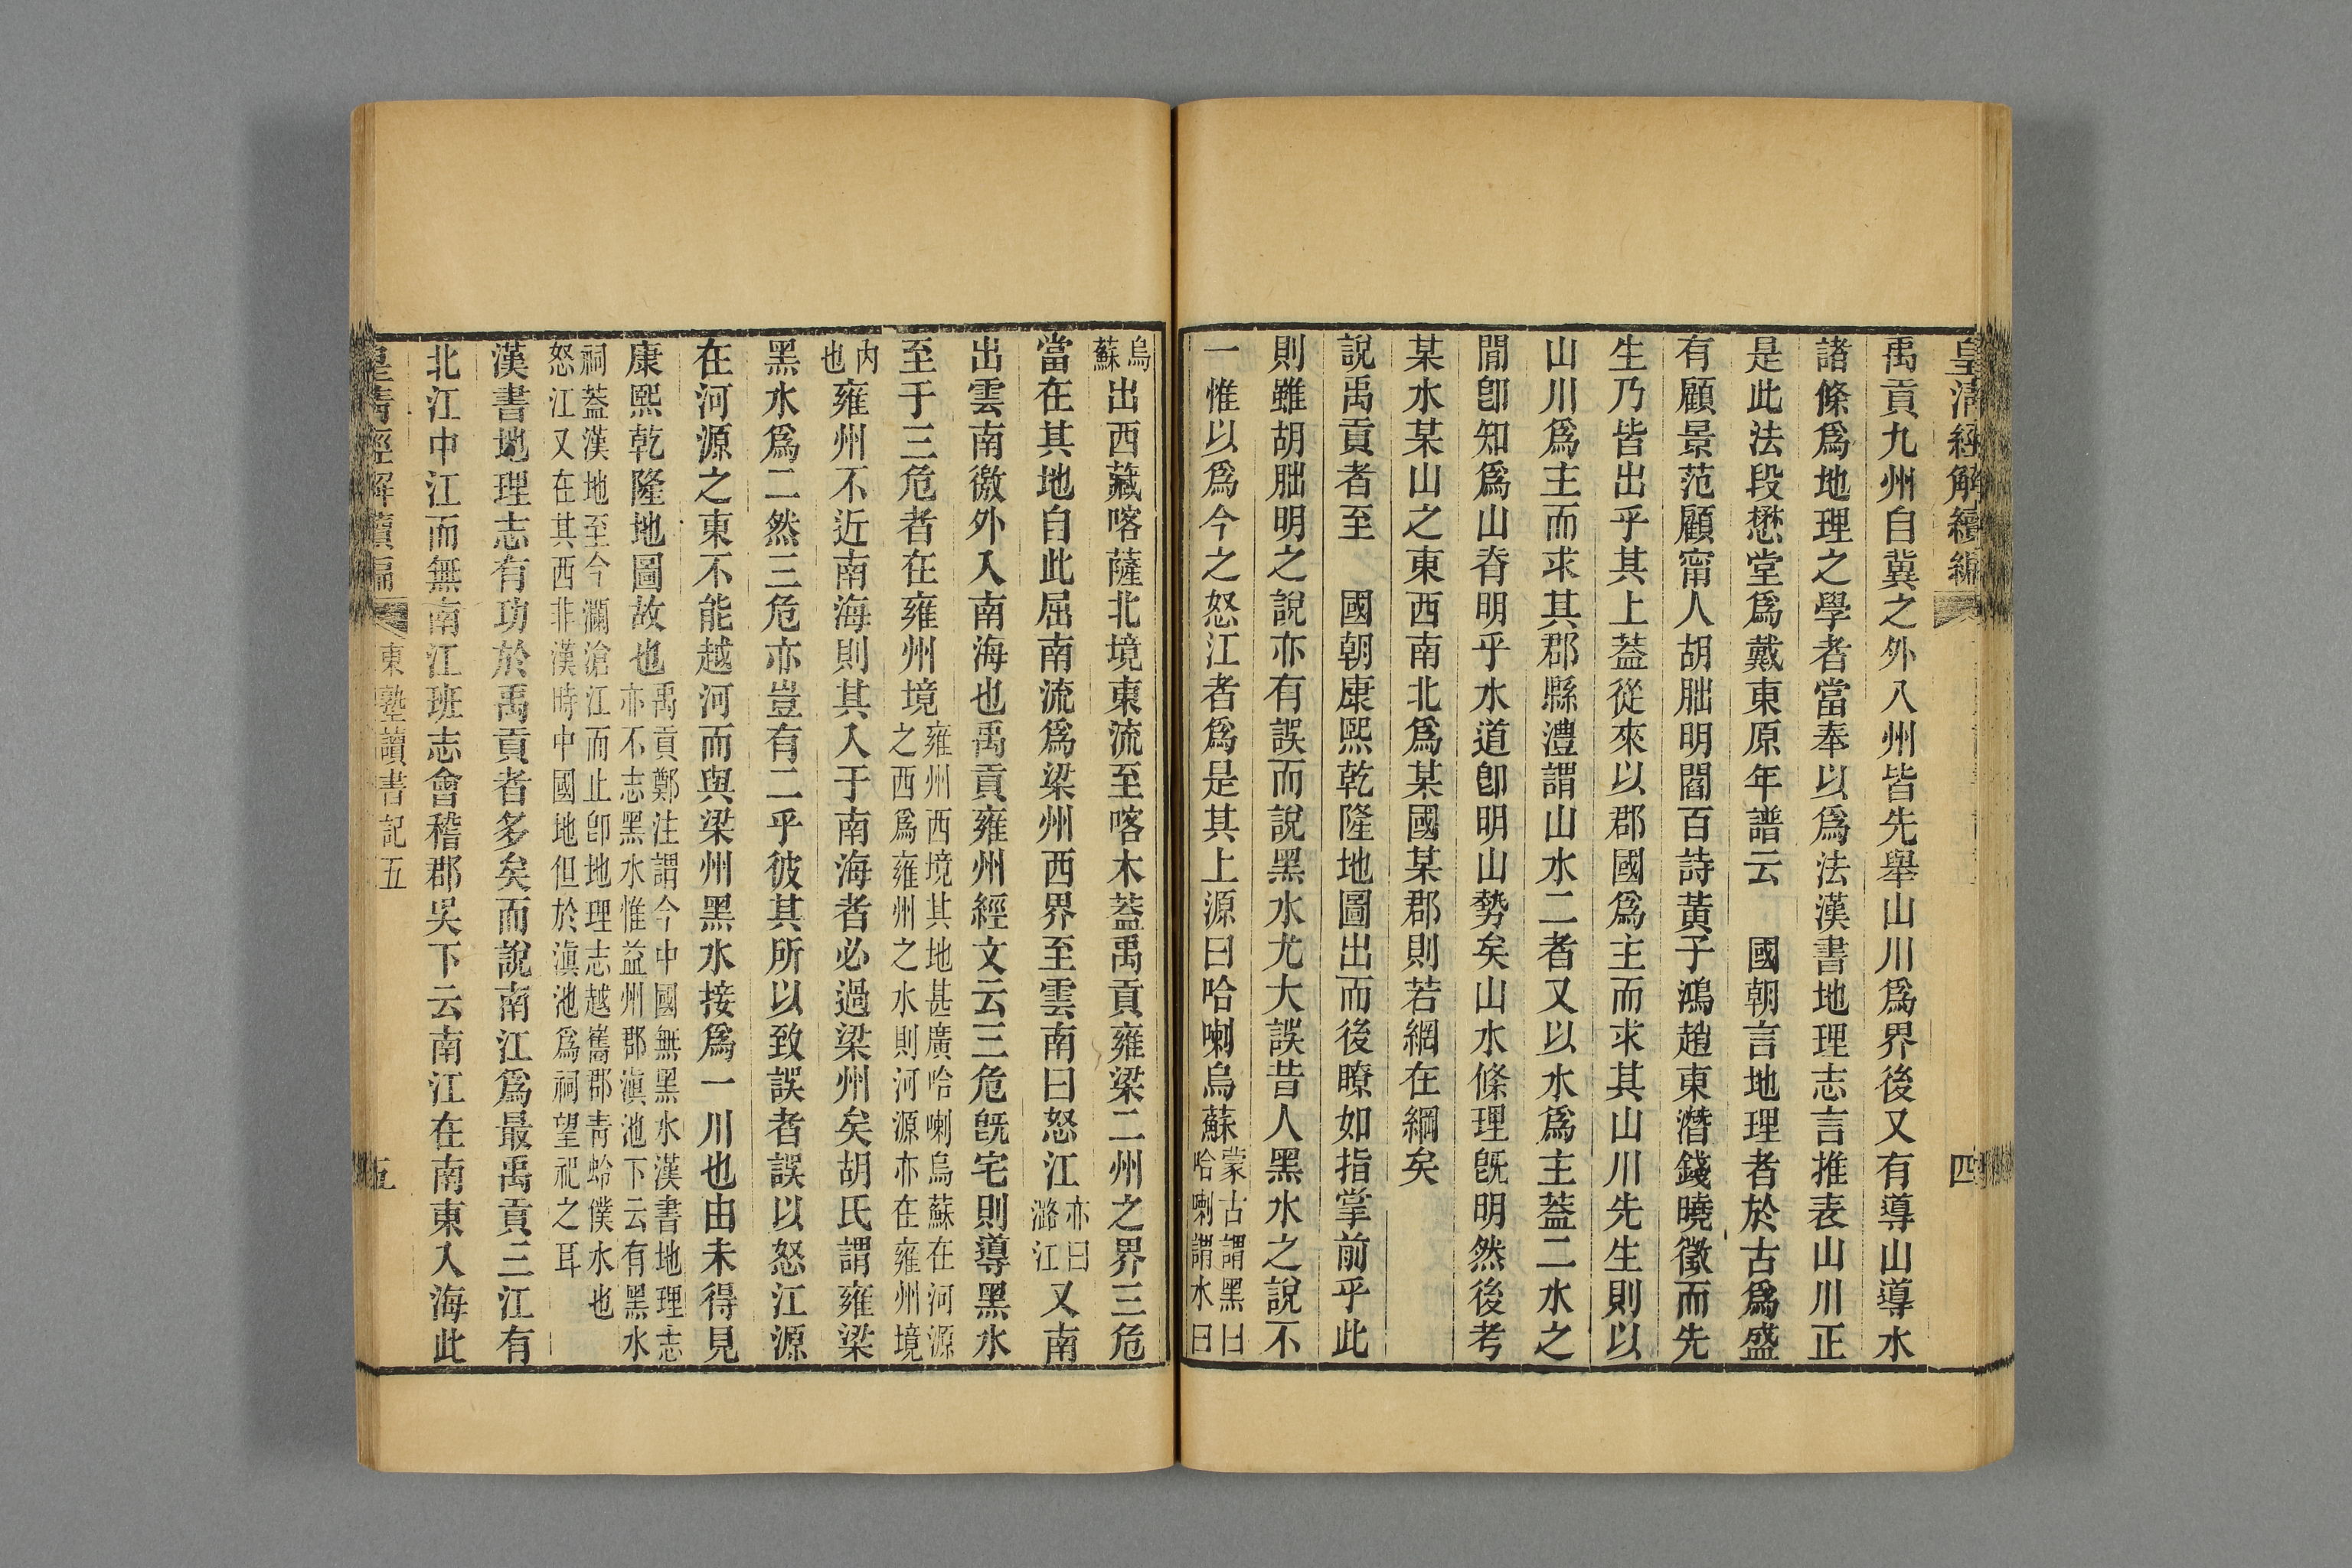 皇清經解續編 四
禹貢九州自冀之外八州皆先舉山川爲界後又有導山導水
諸條爲地理之學者當奉以爲法漢書地理志言推表山川正
是此法段懋堂爲戴東原年譜云 國朝言地理者於古爲盛
有顧景范顧甯人胡朏明閻百詩黃子鴻趙東潛錢曉徵而先
生乃皆出乎其上蓋從來以郡國爲主而求其山川先生則以
山川爲主而求其郡縣澧謂山水二者又以水爲主蓋二水之
閒卽知爲山脊明乎水道卽明山勢矣山水條理旣明然後考
某水某山之東西南北爲某國某郡則若網在綱矣
說禹貢者至 國朝康熙乾隆地圖出而後瞭如指掌前乎此
則雖胡朏明之說亦有誤而說黑水尤大誤昔人黑水之說不
一惟以爲今之怒江者爲是其上源曰哈喇烏蘇蒙古謂黑曰哈喇謂水曰
烏蘇出西藏喀薩北境東流至喀木蓋禹貢雍梁二州之界三危
當在其地自此屈南流爲梁州西界至雲南曰怒江亦曰潞江又南
出雲南徼外入南海也禹貢雍州經文云三危旣宅則導黑水
至于三危者在雍州境雍州西境其地甚廣哈喇烏蘇在河源之西爲雍州之水則河源亦在雍州境
內也雍州不近南海則其入于南海者必過梁州矣胡氏謂雍梁
黑水爲二然三危亦豈有二乎彼其所以致誤者誤以怒江源
在河源之東不能越河而與梁州黑水接爲一川也由未得見
康熙乾隆地圖故也禹貢鄭注謂今中國無黑水漢書地理志亦不志黑水惟益州郡滇池下云有黑水
祠蓋漢地至今瀾滄江而止卽地理志越巂郡靑蛉僕水也怒江又在其西非漢時中國地但於滇池爲祠望祀之耳
漢書地理志有功於禹貢者多矣而說南江爲最禹貢三江有
北江中江而無南江班志會稽郡吳下云南江在南東入海此
皇清經解續編 東塾讀書記五 五